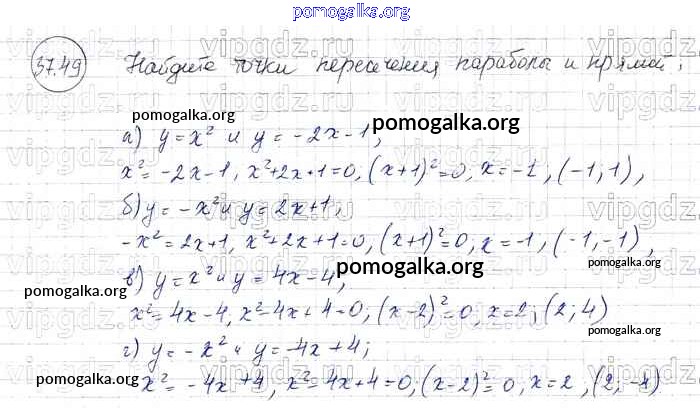 pomogalka.org
37.49 Найдите точки пересечения параболы и прямой:
pomogalka.org
а) y = x² и y = -2x-1;
pomogalka.org
x² = -2x-1, x²+2x+1=0, (x+1)²=0, x=-1, (-1,1),
б) y = -x² и y = 2x+1,
pomogalka.org
-x² = 2x+1, x²+2x+1=0, (x+1)²=0, x=-1, (-1,-1),
в) y = x² и y = 4x-4,
pomogalka.org
pomogalka.org
pomogalka.org
x² = 4x-4, x²-4x+4=0, (x-2)²=0, x=2; (2; 4)
pomogalka.org
г) y = -x² и y = -4x+4;
pomogalka.org
pomogalka.org
-x² = -4x+4, x²-4x+4=0; (x-2)²=0, x=2, (2; -4)
vipgdz.ru